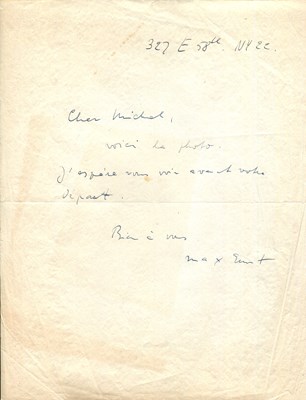 327 E 58th. NY 22.
Cher Michel,
voici la photo.
J'espère vous voir avant votre
départ.
Bien à vous
max Ernst